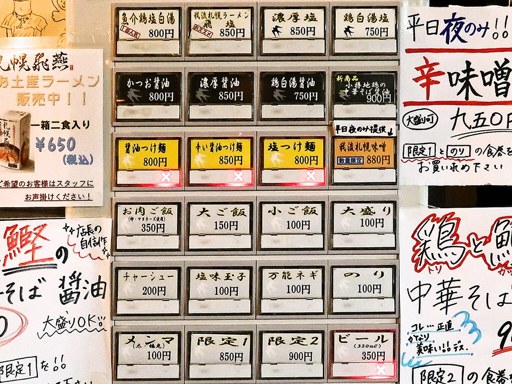 札幌飛燕
お土産ラーメン
販売中！！
一箱二食入り
¥650
(税込)
ご希望のお客様はスタッフに
お声掛けください！
魚介鶏塩白湯
800円
我流札幌ラーメン
850円
濃厚塩
850円
鶏塩
750円
かつお醤油
800円
濃厚醤油
850円
鶏白湯醤油
750円
新商品
小樽地鶏の
900円
醤油つけ麺
800円
辛い醤油つけ麺
850円
塩つけ麺
800円
平日夜のみ提供
我流札幌味噌
880円
お肉ご飯
350円
大ご飯
150円
小ご飯
100円
大盛り
100円
チャーシュー
200円
塩味玉子
100円
万能ネギ
100円
のり
100円
メンマ
100円
限定1
850円
限定2
900円
ビール
350円
平日夜のみ!!
辛味噌
大盛り可
九五〇円
限定1とのりの食券を
お買い求め下さい
鰹の
店長の
自信作
そば 醤油
大盛りOK!!
限定1を!!
鶏と
トリ
中華そば
正直
美味いっス。
限定2の食券を